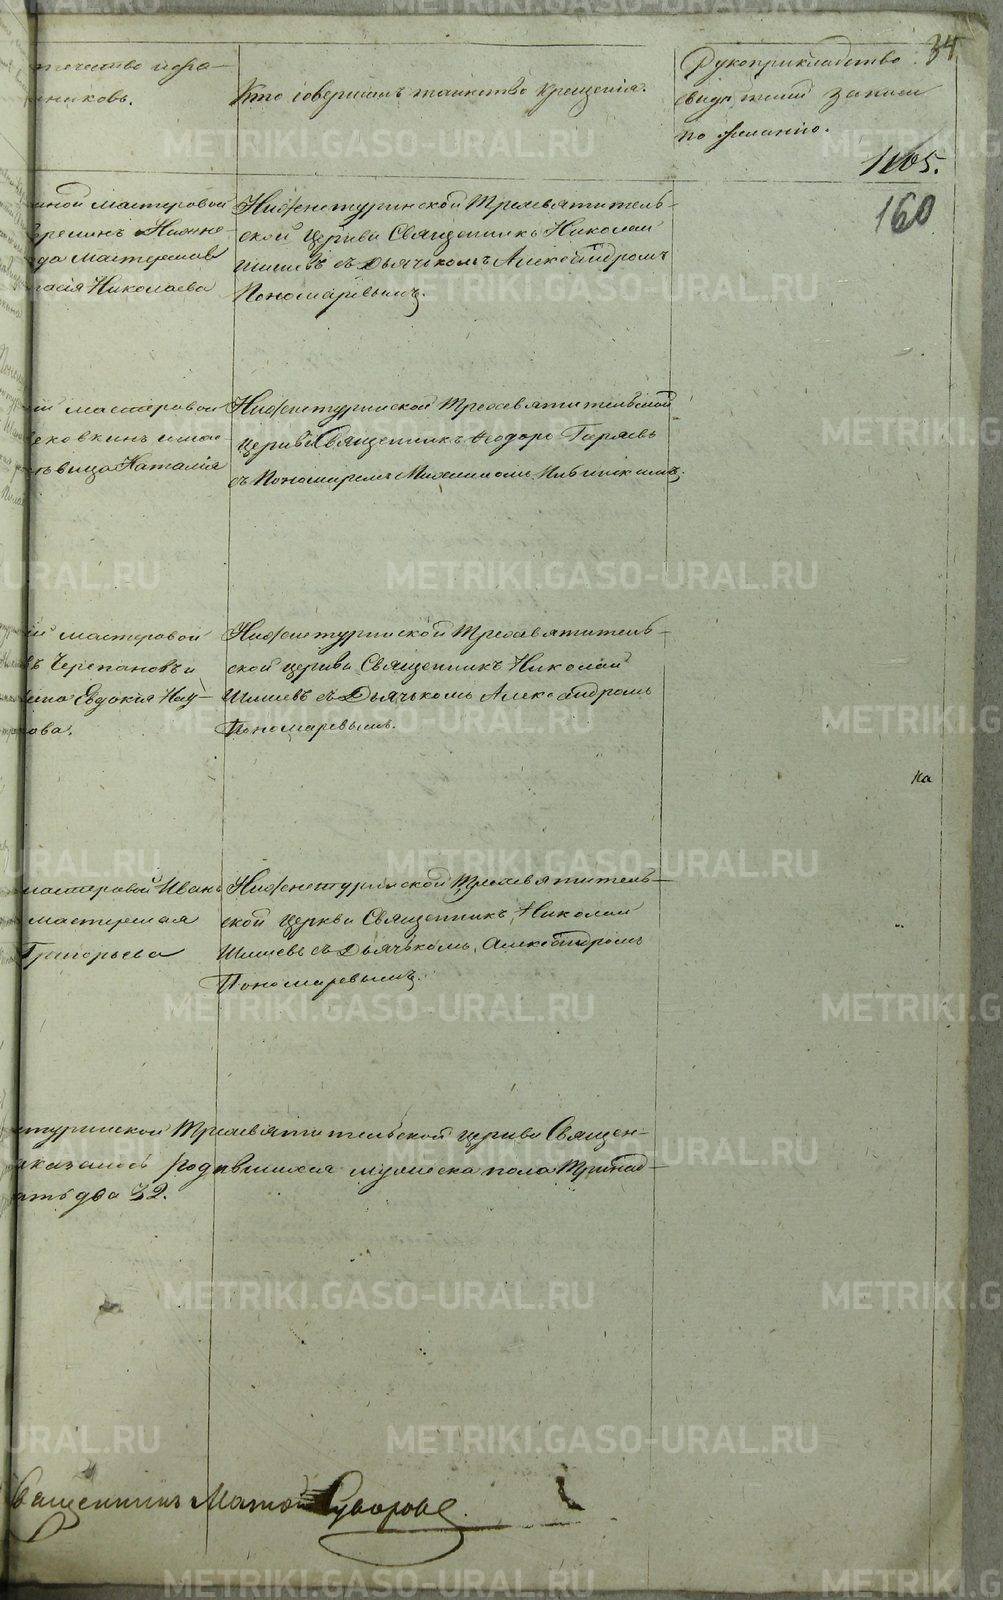 34
отчество воспр-
никовъ.
Кто совершалъ таинство крещенія.
Рукоприкладство
свидѣтелей записи
по желанію.
1105.
160
мастеровой
Николаева
Нижнетуринской Трехсвятитель-
ской церкви Священникъ Николай
Шишевъ съ Дьячькомъ Александромъ
Пономаревымъ.
ій мастеровой
вица Наталія
Нижнетуринской Трехсвятительской
церкви Священникъ Ѳеодоръ Гаряевъ
съ Пономаремъ
ій мастеровой
ъ Черепановъ и
Евдокія Нау-
мова.
Нижнетуринской Трехсвятитель-
ской церкви Священникъ Николай
Шишевъ съ Дьячькомъ Александромъ
Пономаревымъ.
на
мастеровой Иванъ
Григорьева
Нижнетуринской Трехсвятитель-
ской церкви Священникъ Николай
Шишевъ съ Дьячькомъ Александромъ
Пономаревымъ.
етуринской Трехсвятительской церкви Священ-
оказалось родившихся мужеска пола Тринад-
ать два 32.
Священникъ Суворовъ.
METRIKI.GASO-URAL.RU